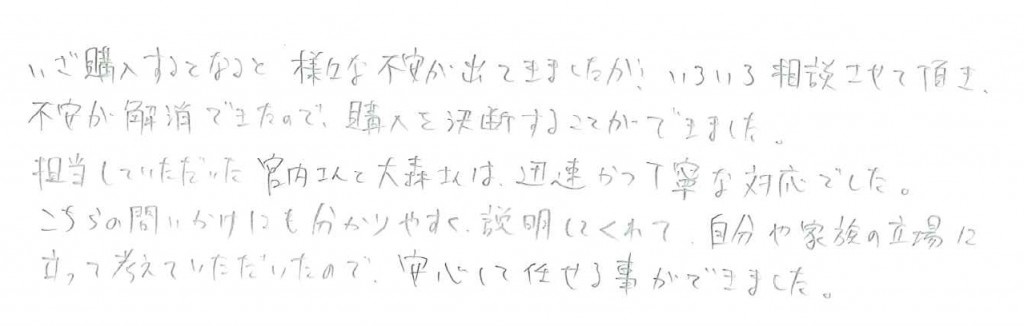 いざ購入するとなると様々な不安が出てきましたが、いろいろ相談させて頂き、
不安が解消できたので、購入を決断することができました。
担当していただいた宮内さんと大森さんは、迅速かつ丁寧な対応でした。
こちらの問いかけにも分かりやすく、説明してくれて、自分や家族の立場に
立って考えていただいたので、安心して任せる事ができました。